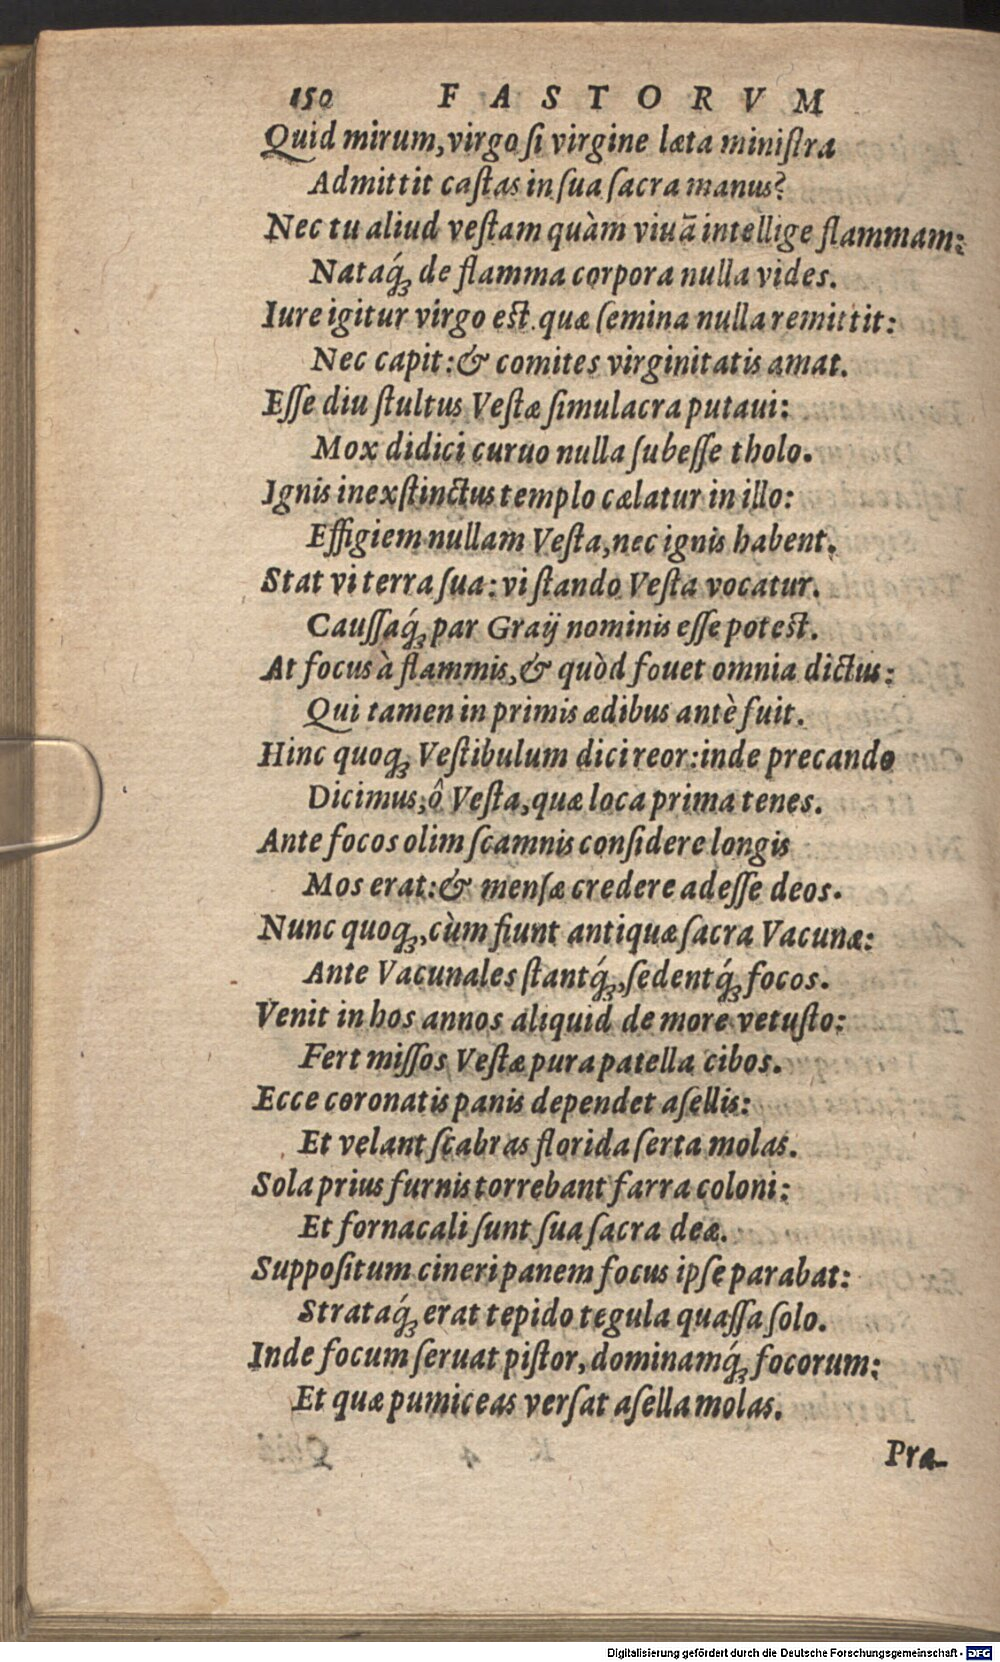 150 FASTORVM
Quid mirum, virgo ſi virgine læta miniſtra
Admittit caſtas in ſua ſacra manus?
Nec tu aliud veſtam quàm viuā intellige flammam:
Nataq́ꝫ de flamma corpora nulla vides.
Iure igitur virgo eſt, quæ ſemina nulla remittit:
Nec capit: & comites virginitatis amat.
Eſſe diu ſtultus Veſtæ ſimulacra putaui:
Mox didici curuo nulla ſubeſſe tholo.
Ignis inexſtinctus templo cælatur in illo:
Effigiem nullam Veſta, nec ignis habent.
Stat vi terra ſua: vi ſtando Veſta vocatur.
Cauſſaq́ꝫ par Graij nominis eſſe poteſt.
At focus à flammis, & quòd fouet omnia dictus:
Qui tamen in primis ædibus antè fuit.
Hinc quoqꝫ Veſtibulum dici reor: inde precando
Dicimus, ô Veſta, quæ loca prima tenes.
Ante focos olim ſcamnis conſidere longis
Mos erat: & menſæ credere adeſſe deos.
Nunc quoqꝫ, cùm fiunt antiquæ ſacra Vacunæ:
Ante Vacunales ſtantq́ꝫ, ſedentq́ꝫ focos.
Venit in hos annos aliquid de more vetuſto:
Fert miſſos Veſtæ pura patella cibos.
Ecce coronatis panis dependet aſellis:
Et velant ſcabras florida ſerta molas.
Sola prius furnis torrebant farra coloni:
Et fornacali ſunt ſua ſacra deæ.
Suppoſitum cineri panem focus ipſe parabat:
Strataq́ꝫ erat tepido tegula quaſſa ſolo.
Inde focum ſeruat piſtor, dominamq́ꝫ focorum:
Et quæ pumiceas verſat aſella molas.
Præ-
Digitalisierung gefördert durch die Deutsche Forschungsgemeinschaft - DFG